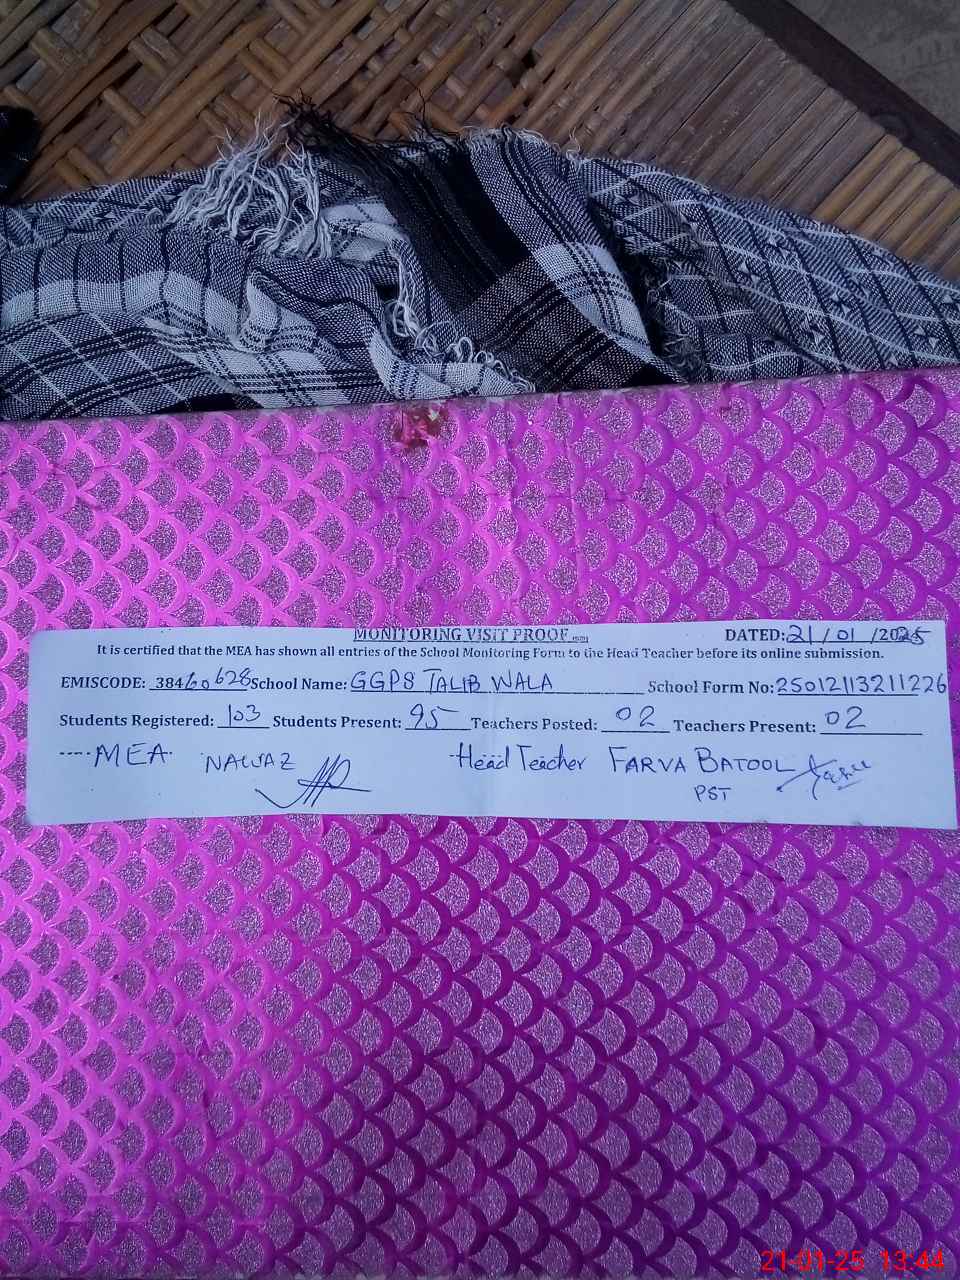 MONITORING VISIT PROOF DATED: 21/01/2025
It is certified that the MEA has shown all entries of the School Monitoring Form to the Head Teacher before its online submission.
EMISCODE: 38460628 School Name: GGPS TALIB WALA School Form No: 25012113211226
Students Registered: 103 Students Present: 95 Teachers Posted: 02 Teachers Present: 02
MEA NAWAZ Head Teacher FARVA BATOOL
PST
21-01-25 13:44